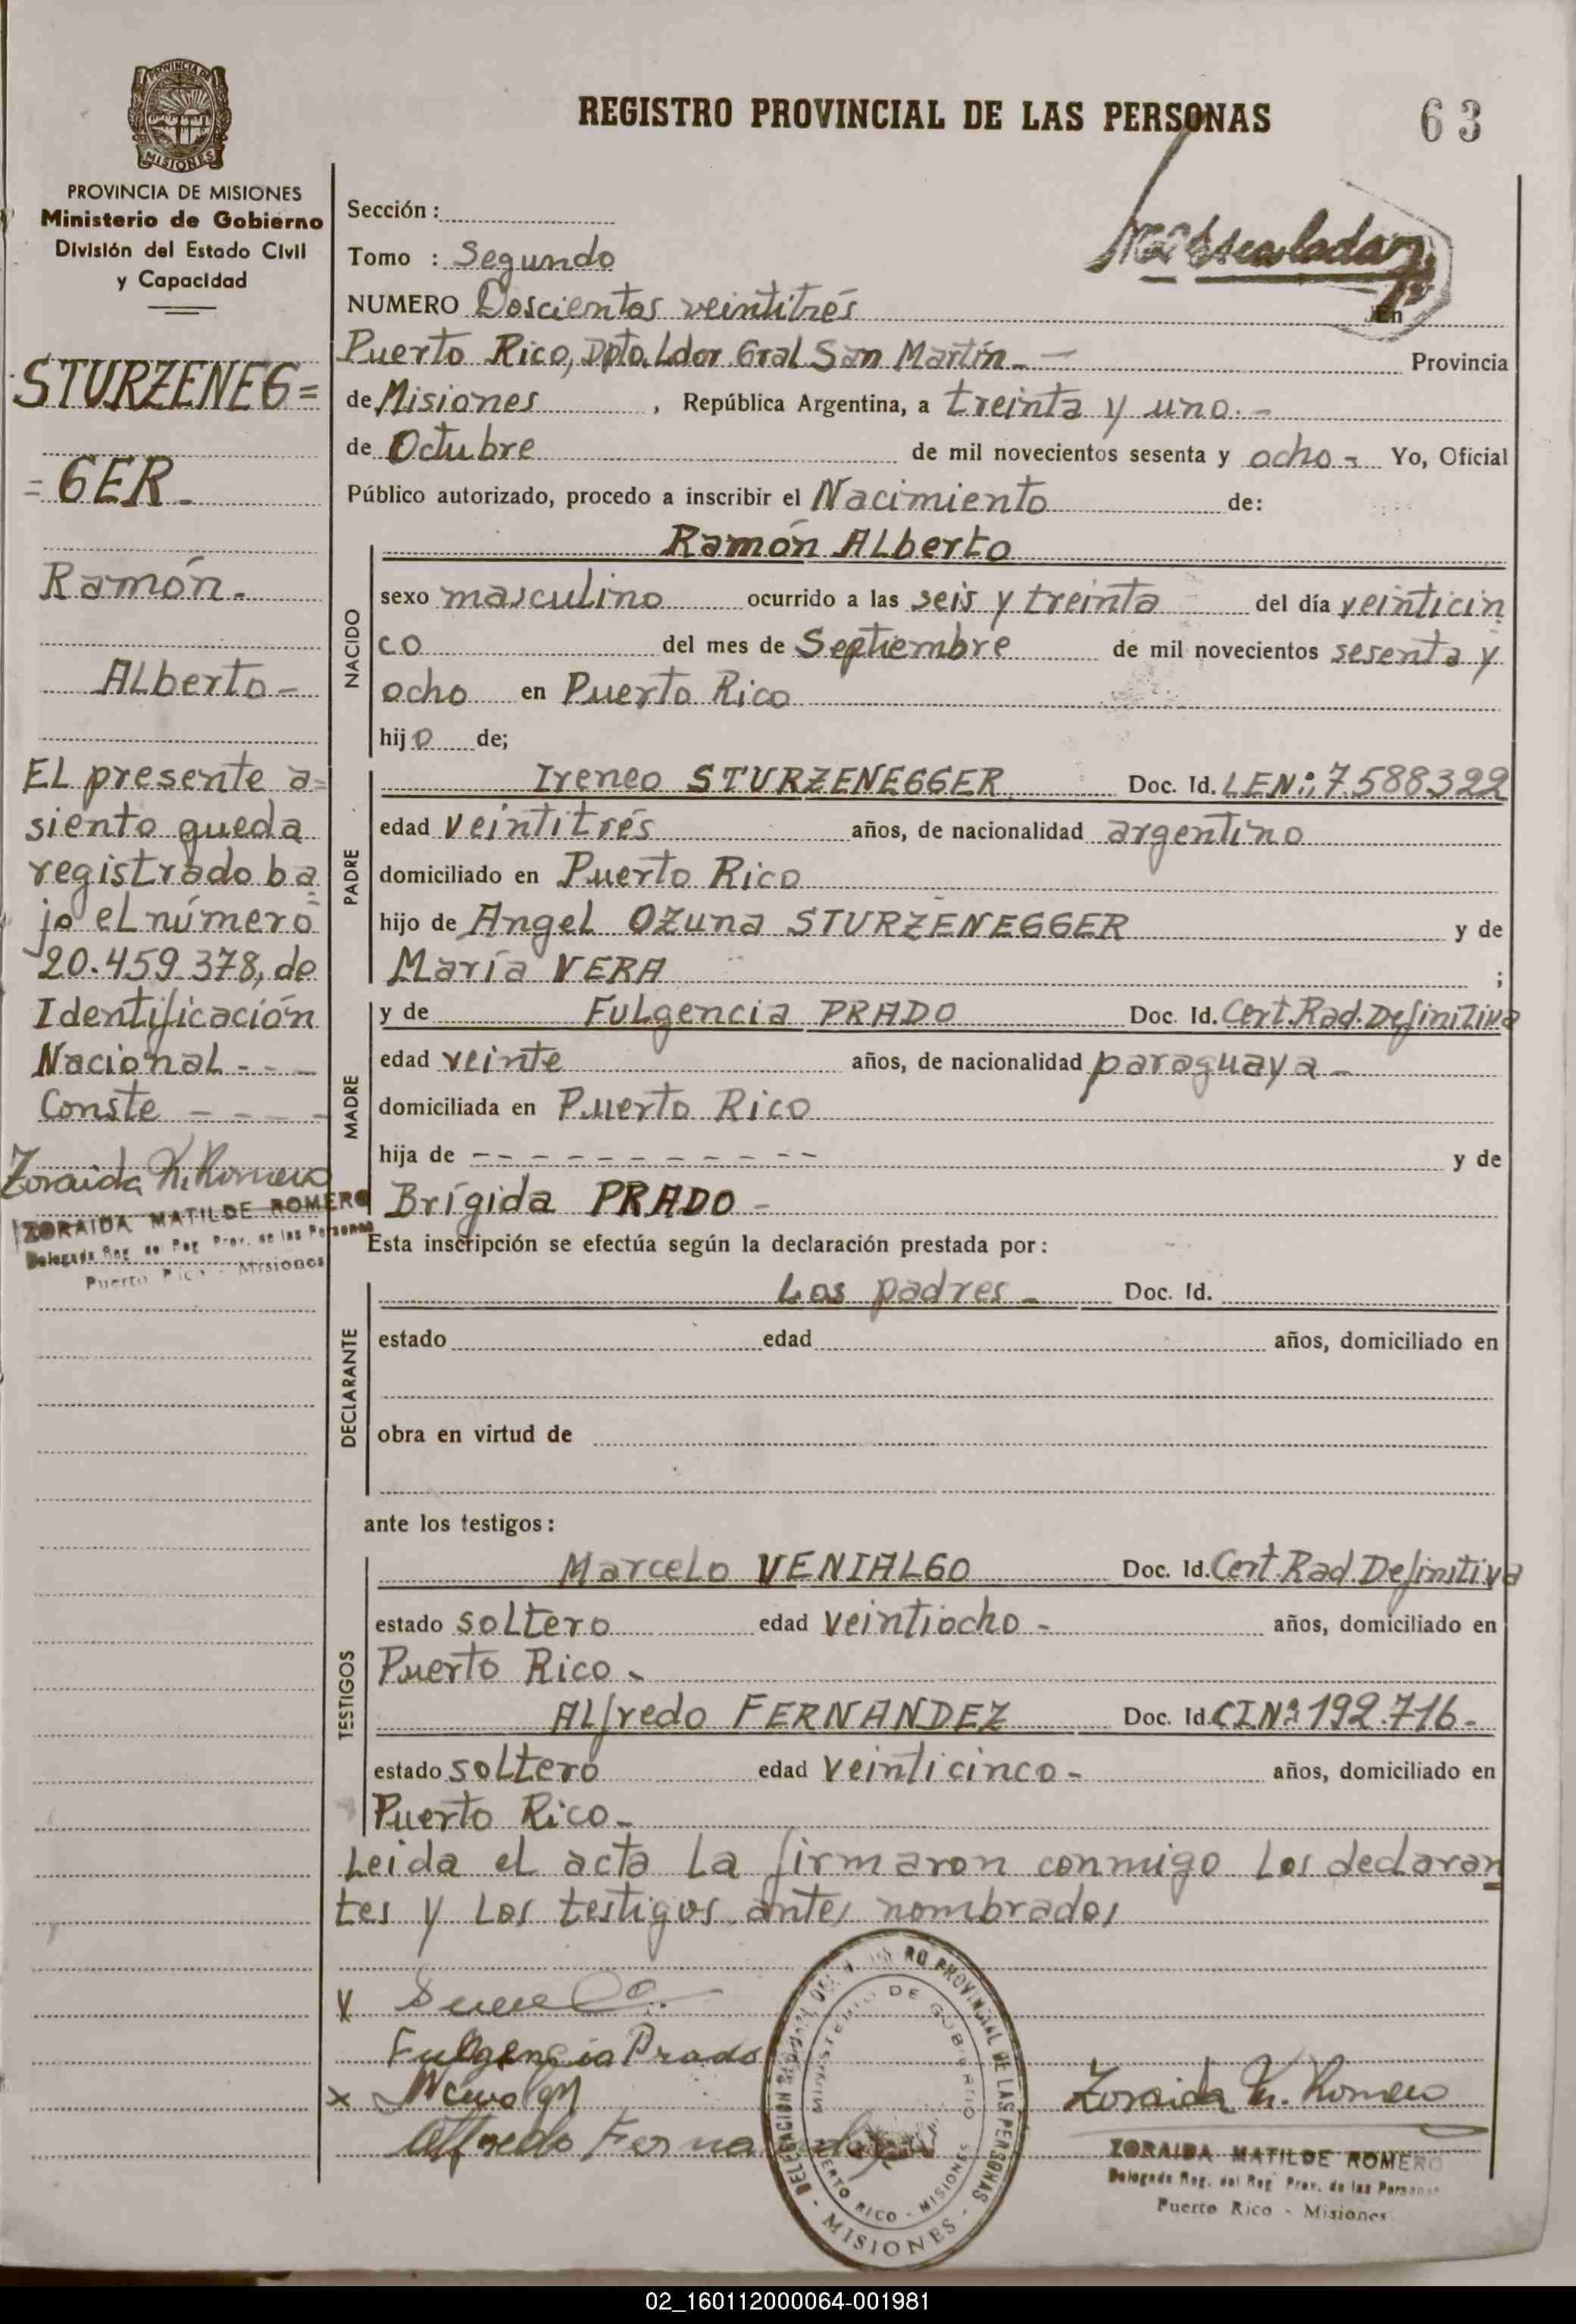 REGISTRO PROVINCIAL DE LAS PERSONAS
63
PROVINCIA DE
MISIONES
PROVINCIA DE MISIONES
Ministerio de Gobierno
División del Estado Civil
y Capacidad
STURZENEG=
=GER-
Ramón-
Alberto-
El presente a=
siento queda
registrado ba=
jo el número
20.459.378, de
Identificación
Nacional - - -
Conste - - - -
Zoraida M. Romero
ZORAIDA MATILDE ROMERO
Delegada Reg. del Reg. Prov. de las Personas
Puerto Rico - Misiones
Sección :
Tomo : Segundo
NUMERO Doscientos veintitrés En
Puerto Rico, Dpto. Ldor Gral San Martín.- Provincia
de Misiones , República Argentina, a treinta y uno.-
de Octubre de mil novecientos sesenta y ocho - Yo, Oficial
Público autorizado, procedo a inscribir el Nacimiento de:
NACIDO
Ramón Alberto
sexo masculino ocurrido a las seis y treinta del día veinticin
co del mes de Septiembre de mil novecientos sesenta y
ocho en Puerto Rico
hijo de;
PADRE
Ireneo STURZENEGGER Doc. Id. LENº: 7.588322
edad veintitrés años, de nacionalidad argentino
domiciliado en Puerto Rico
hijo de Angel Ozuna STURZENEGGER y de
María VERA ;
MADRE
y de Fulgencia PRADO Doc. Id. Cert. Rad. Definitiva
edad veinte años, de nacionalidad paraguaya -
domiciliada en Puerto Rico
hija de - - - - - - - - - - - - y de
Brígida PRADO -
Esta inscripción se efectúa según la declaración prestada por :
DECLARANTE
Los padres - Doc. Id.
estado edad años, domiciliado en
obra en virtud de
ante los testigos :
TESTIGOS
Marcelo VENIALGO Doc. Id. Cert. Rad. Definitiva
estado soltero edad veintiocho - años, domiciliado en
Puerto Rico -
Alfredo FERNANDEZ Doc. Id. CINº 192.716-
estado soltero edad veinticinco - años, domiciliado en
Puerto Rico -
Leida el acta la firmaron conmigo los declaran
tes y los testigos antes nombrados
Fulgencia Prado
Alfredo Fernandez
MINISTERIO DE GOBIERNO
PUERTO RICO - MISIONES
- MISIONES -
Zoraida M. Romero
ZORAIDA MATILDE ROMERO
Delegada Reg. del Reg. Prov. de las Personas
Puerto Rico - Misiones
02_160112000064-001981